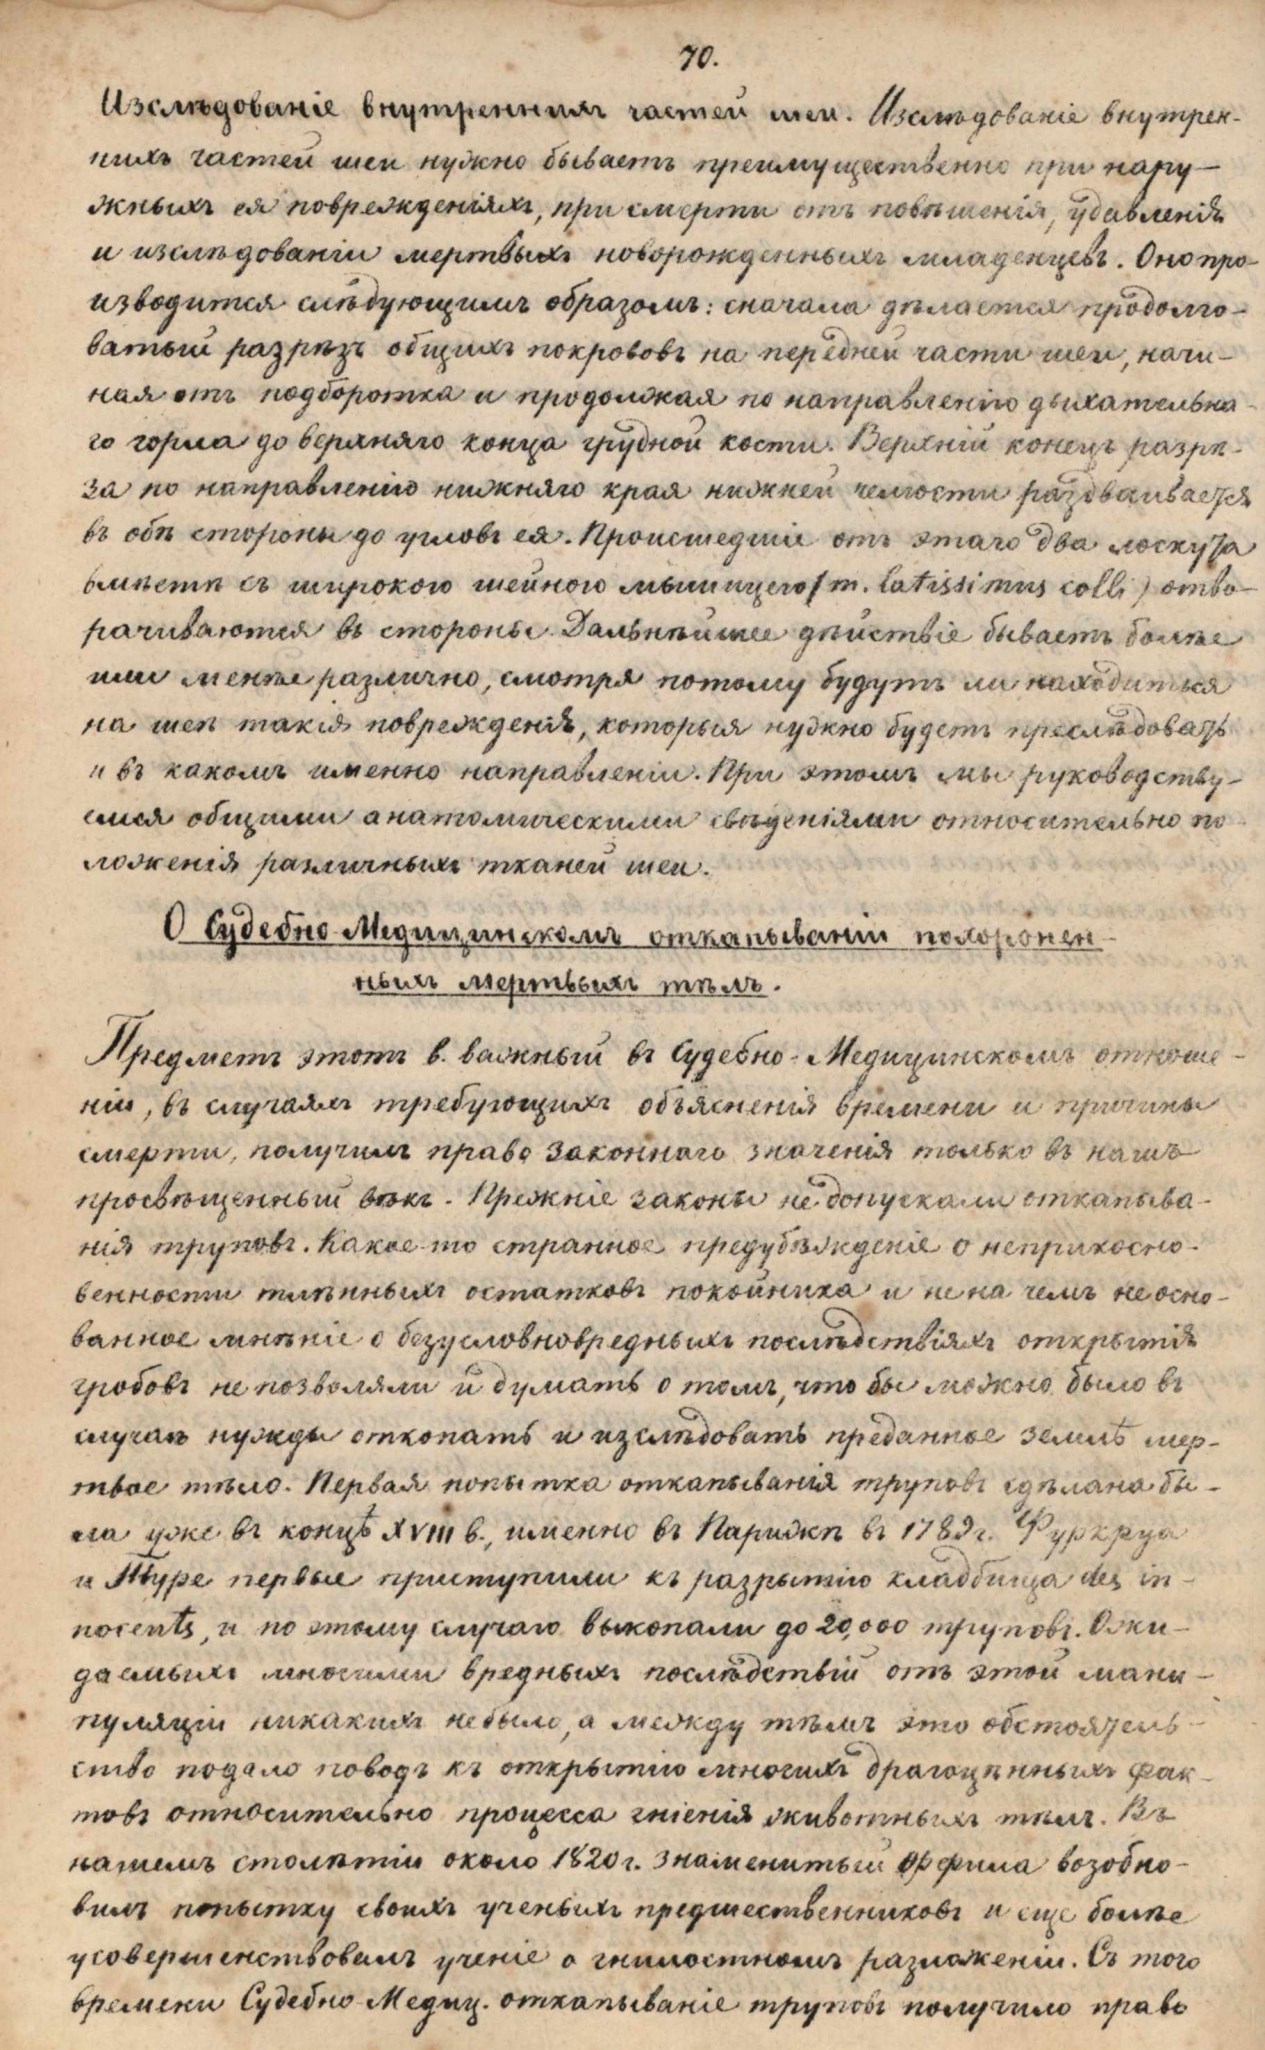 70.
Изслѣдованіе внутреннихъ частей шеи. Изслѣдованіе внутрен-
нихъ частей шеи нужно бываетъ преимущественно при нару-
жныхъ ея поврежденіяхъ, при смерти отъ повѣшенія, удавленія
и изслѣдованіи мертвыхъ новорожденныхъ младенцевъ. Оно про-
изводится слѣдующимъ образомъ: сначала дѣлается продолго-
ватый разрѣзъ общихъ покрововъ на передней части шеи, начи-
ная отъ подборотка и продолжая по направленію дыхательна-
го горла до верхняго конца грудной кости. Верхній конецъ разрѣ-
за по направленію нижняго края нижней челюсти раздваивается
въ обѣ стороны до угловъ ея. Происшедшіе отъ этаго два лоскута
вмѣстѣ съ широкою шейною мышицею (m. latissimus colli) отво-
рачиваются въ стороны. Дальнѣйшее дѣйствіе бываетъ болѣе
или менѣе различно, смотря потому будутъ ли находиться
на шеѣ такія поврежденія, которыя нужно будетъ преслѣдовать
и въ какомъ именно направленіи. При этомъ мы руководству-
емся общими анатомическими свѣденіями относительно по-
ложенія различныхъ тканей шеи.
О Судебно-Медицинскомъ откапываніи похоронен-
ныхъ мертвыхъ тѣлъ.
Предметъ этотъ в. важный въ Судебно-Медицинскомъ отноше-
ніи, въ случаяхъ требующихъ объясненія времени и причины
смерти, получилъ право законнаго значенія только въ нашъ
просвѣщенный вѣкъ. Прежніе законы не допускали откапыва-
нія труповъ. Какое-то странное предубѣжденіе о неприкосно-
венности тлѣнныхъ остатковъ покойника и не на чемъ не осно-
ванное мнѣніе о безусловновредныхъ послѣдствіяхъ открытія
гробовъ не позволяли и думать о томъ, что бы можно было въ
случаѣ нужды откопать и изслѣдовать преданное землѣ мер-
твое тѣло. Первая попытка откапыванія труповъ сдѣлана бы-
ла уже въ концѣ XVIII в., именно въ Парижѣ въ 1789 г. Фуркруа
и Туре первые приступили къ разрытію кладбища des in-
nocents, и по этому случаю выкопали до 20,000 труповъ. Ожи-
даемыхъ многими вредныхъ послѣдствій отъ этой мани-
пуляціи никакихъ небыло, а между тѣмъ это обстоятель-
ство подало поводъ къ открытію многихъ драгоцѣнныхъ фак-
товъ относительно процесса гніенія животныхъ тѣлъ. Въ
нашемъ столѣтіи около 1820 г. знаменитый Орфила возобно-
вилъ попытку своихъ ученыхъ предшественниковъ и еще болѣе
усовершенствовалъ ученіе о гнилостномъ разложеніи. Съ того
времени Судебно-Медиц. откапываніе труповъ получило право